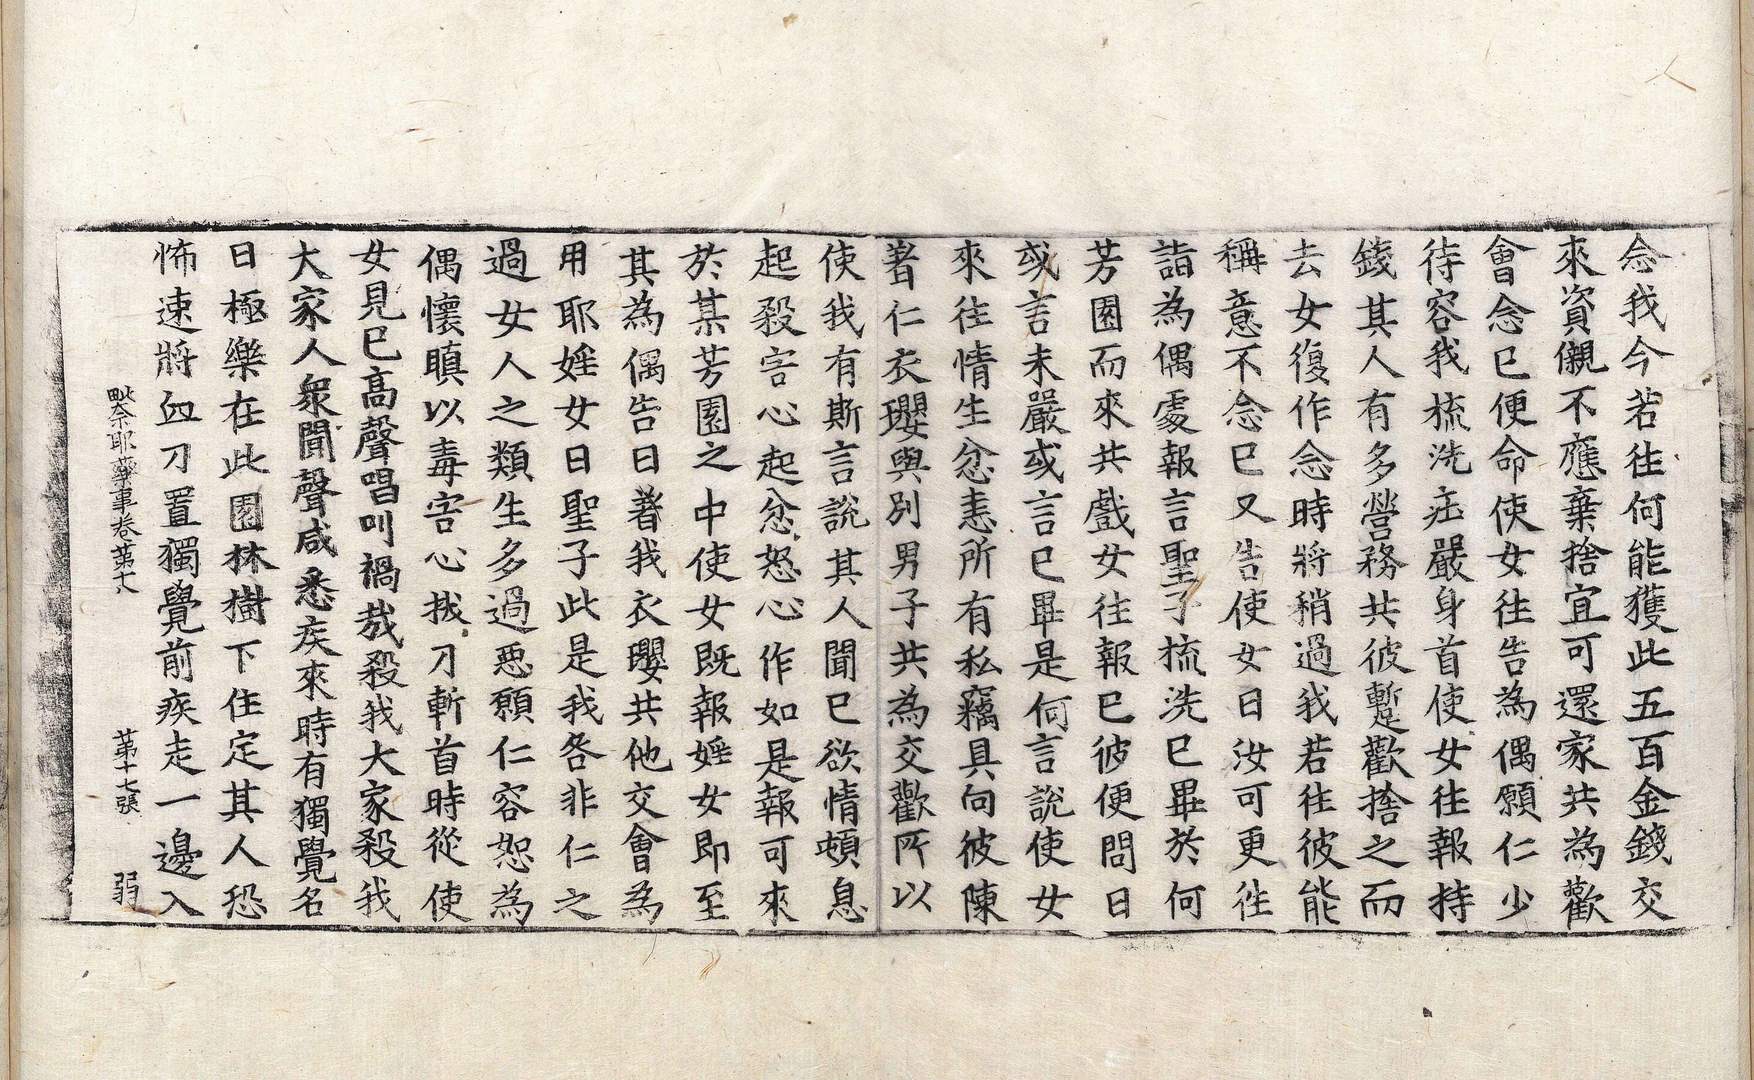 念我今若往何能獲此五百金錢交
來資儭不應棄捨宜可還家共為歡
會念已便命使女往告為偶願仁少
待容我梳洗莊嚴身首使女往報持
錢其人有多營務共彼蹔歡捨之而
去女復作念時將稍過我若往彼能
稱意不念已又告使女曰汝可更往
詣為偶處報言聖子梳洗已畢於何
芳園而來共戲女往報已彼便問曰
或言未嚴或言已畢是何言說使女
來往情生忿恚所有私竊具向彼陳
著仁衣瓔與別男子共為交歡所以
使我有斯言說其人聞已欲情頓息
起殺害心起忿怒心作如是報可來
於某芳園之中使女既報婬女即至
其為偶告曰著我衣瓔共他交會為
用耶婬女曰聖子此是我咎非仁之
過女人之類生多過惡願仁容恕為
偶懷瞋以毒害心拔刀斬首時從使
女見已高聲唱叫禍哉殺我大家殺我
大家人衆聞聲咸悉疾來時有獨覺名
曰極樂在此園林樹下住定其人恐
怖速將血刀置獨覺前疾走一邊入
毗奈耶藥事卷第十八 第十七張 弱